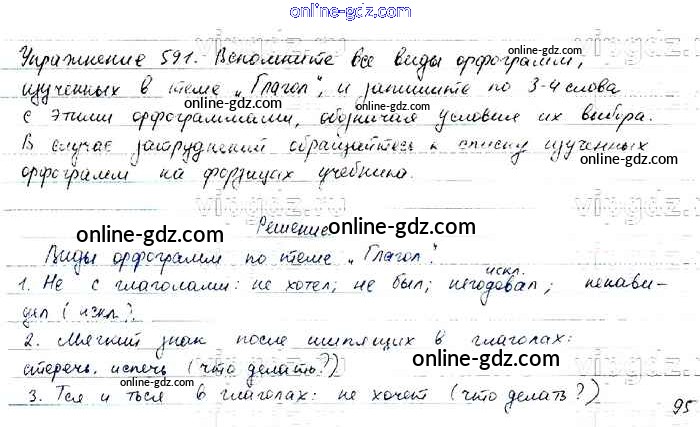 online-gdz.com
Упражнение 591. Вспомните все виды орфограмм,
online-gdz.com
изученных в теме „Глагол", и запишите по 3-4 слова
online-gdz.com online-gdz.com
с этими орфограммами, обозначая условия их выбора.
online-gdz.com
В случае затруднений обращайтесь к списку изученных
online-gdz.com
орфограмм на форзицах учебника.
online-gdz.com
Решение.
online-gdz.com online-gdz.com
Виды орфограмм по теме „Глагол".
искл.
1. Не с глаголами: не хотел; не был; негодовал; ненави-
online-gdz.com
дел (искл).
online-gdz.com
2. Мягкий знак после шипящих в глаголах:
стеречь, испечь (что делать?)
online-gdz.com
3. Тся и ться в глаголах: не хочет (что делать?)
online-gdz.com
95